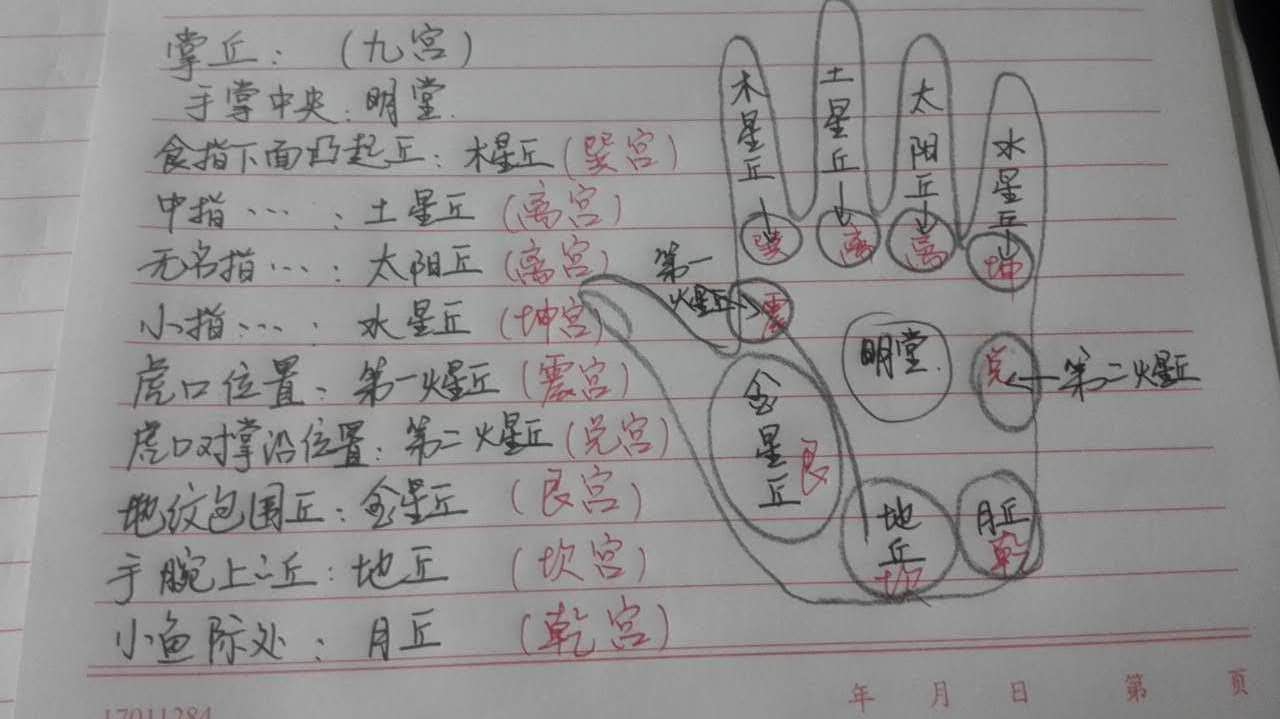 掌丘：（九宫）
手掌中央：明堂.
食指下面凸起丘：木星丘（巽宫）
中指…：土星丘（离宫）
无名指…：太阳丘（离宫）
小指…：水星丘（坤宫）
虎口位置：第一火星丘（震宫）
虎口对掌沿位置：第二火星丘（兑宫）
地纹包围丘：金星丘（艮宫）
手腕上之丘：地丘（坎宫）
小鱼际处：月丘（乾宫）
木星丘
巽
土星丘
离
太阳丘
离
水星丘
坤
第一
火星丘
震
明堂.
兑
第二火星丘
金星丘
艮
地丘
坎
月丘
乾
年 月 日 第 页